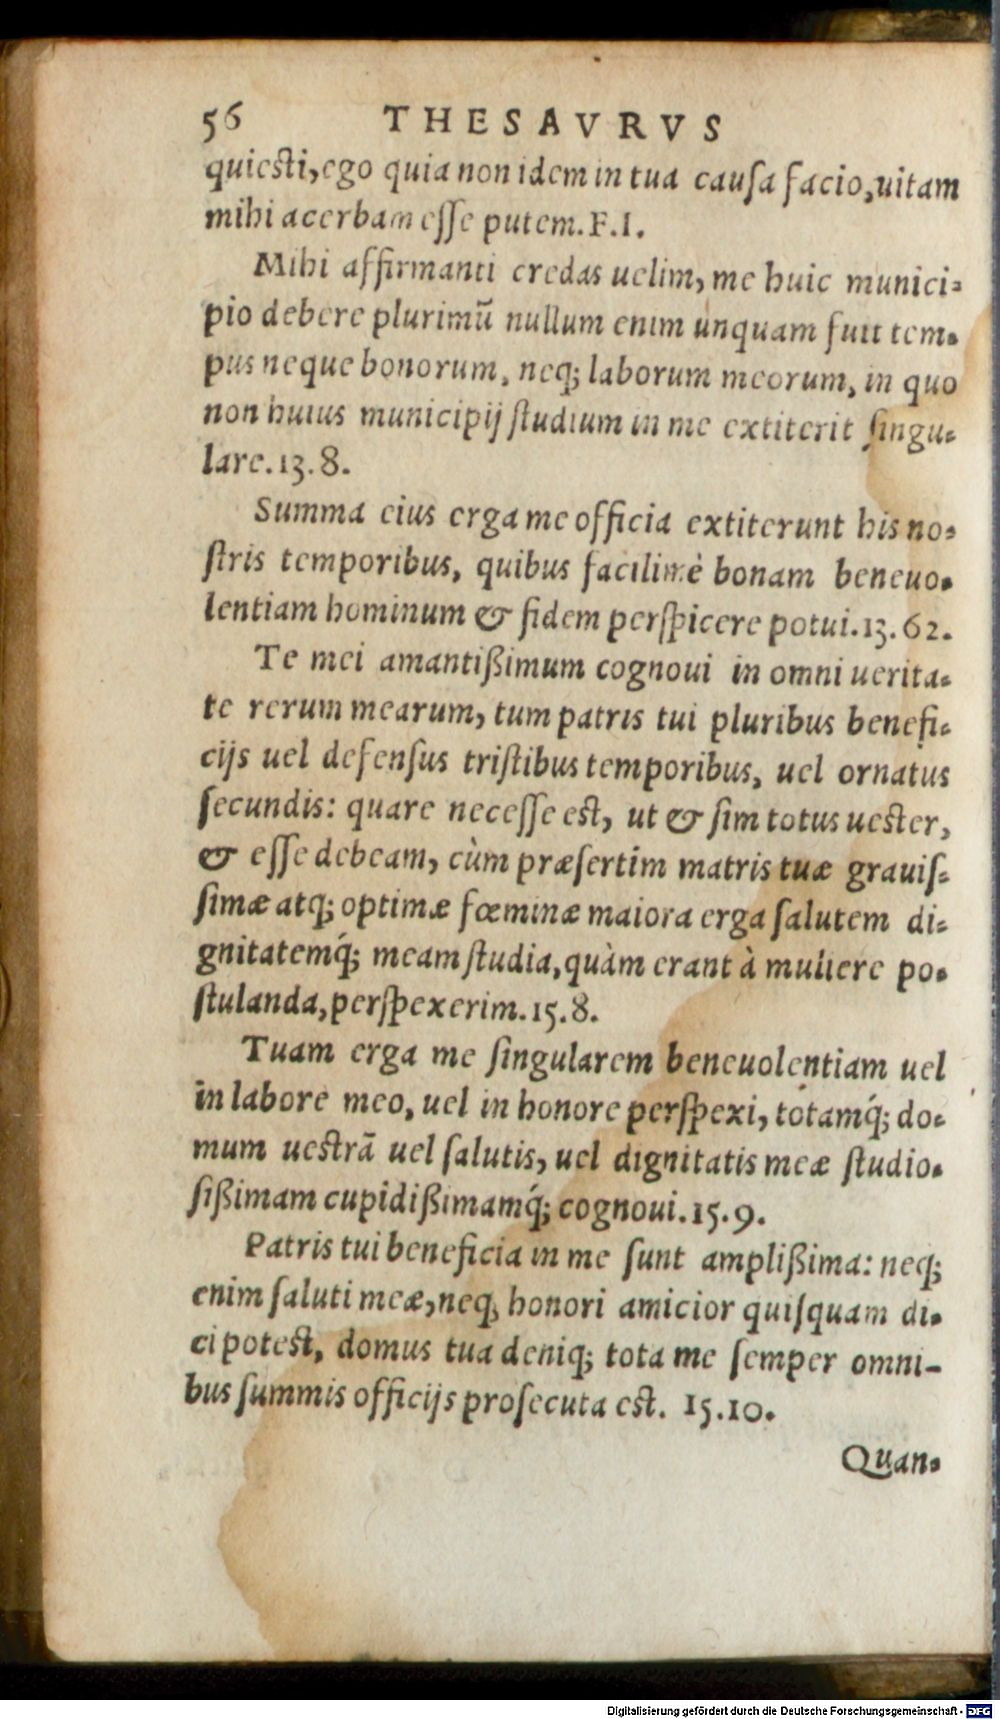 56 THESAVRVS
quiesti, ego quia non idem in tua causa facio, uitam
mihi acerbam esse putem. F.I.
Mihi affirmanti credas uelim, me huic munici-
pio debere plurimū nullum enim unquam fuit tem-
pus neque bonorum, neq; laborum meorum, in quo
non huius municipij studium in me extiterit singu-
lare. 13.8.
Summa eius erga me officia extiterunt his no-
stris temporibus, quibus facilimè bonam beneuo-
lentiam hominum & fidem perspicere potui. 13.62.
Te mei amantißimum cognoui in omni uerita-
te rerum mearum, tum patris tui pluribus benefi-
cijs uel defensus tristibus temporibus, uel ornatus
secundis: quare necesse est, ut & sim totus uester,
& esse debeam, cùm præsertim matris tuæ grauis-
simæ atq; optimæ fœminæ maiora erga salutem di-
gnitatemq́; meam studia, quàm erant à muliere po-
stulanda, perspexerim. 15.8.
Tuam erga me singularem beneuolentiam uel
in labore meo, uel in honore perspexi, totamq́; do-
mum uestrā uel salutis, uel dignitatis meæ studio-
sißimam cupidißimamq́; cognoui. 15.9.
Patris tui beneficia in me sunt amplißima: neq;
enim saluti meæ, neq; honori amicior quisquam di-
ci potest, domus tua deniq; tota me semper omni-
bus summis officijs prosecuta est. 15.10.
Quan-
Digitalisierung gefördert durch die Deutsche Forschungsgemeinschaft - DFG